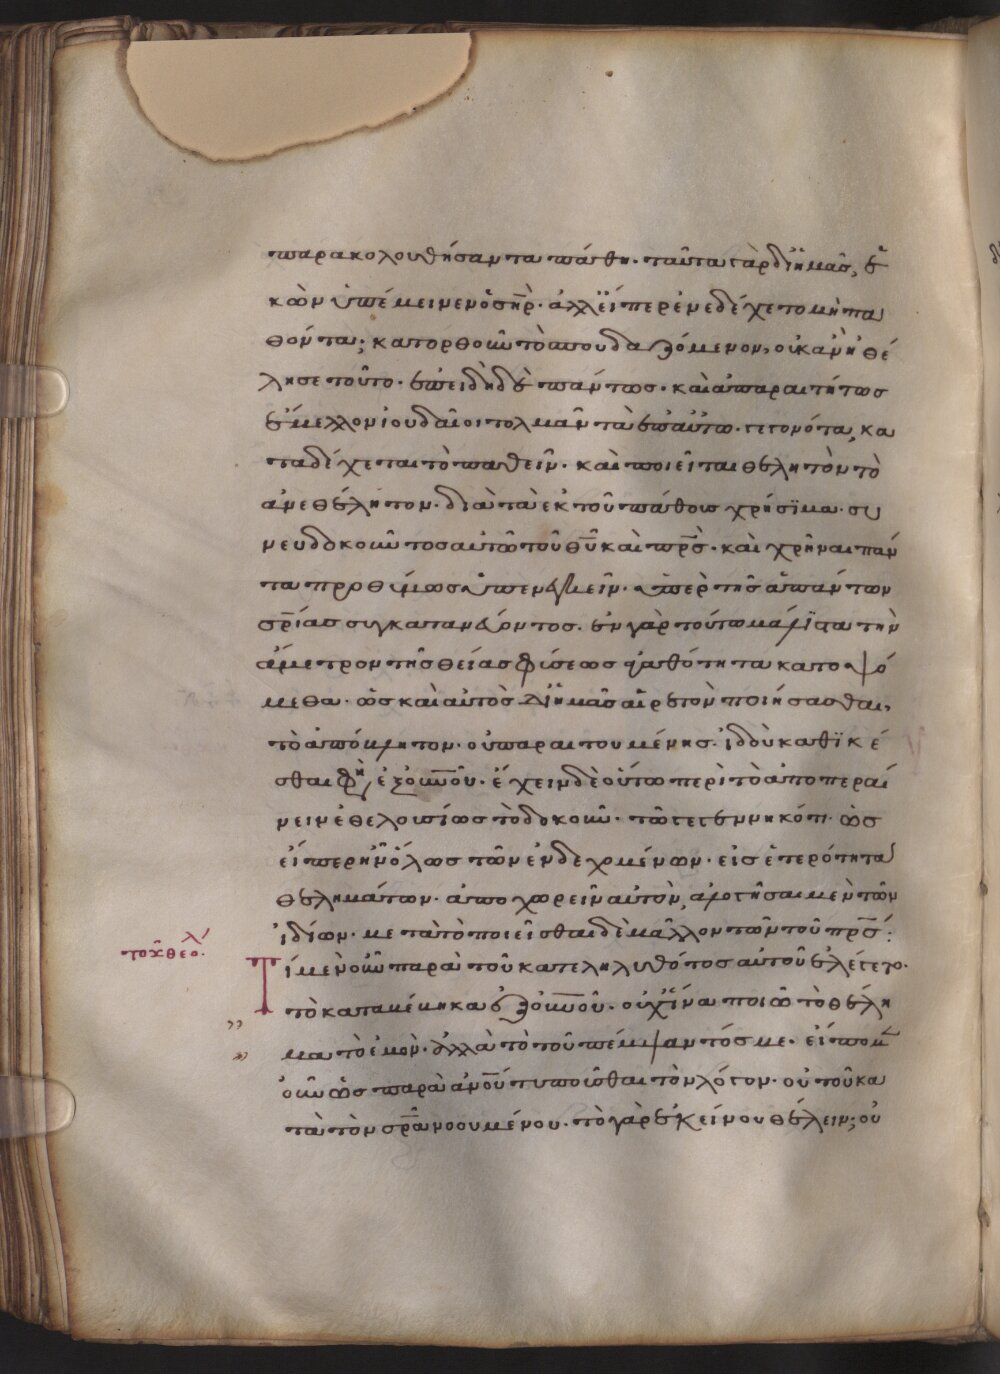 παρακολουθήσαντα πάθη· ταῦτα γὰρ δι ἡμᾶς, ἑ
κὼν ὑπέμεινεν ὁ σηρ· ἀλλ εἴπερ ἐνεδέχετο μὴ πα
θόντα; κατορθοῦν τὸ σπουδαζόμενον, οὐκ ἂν ἠθέ
λησε τοῦτο· ἐπειδὴ δὲ πάντως· καὶ ἀπαραιτήτως
ἔμελλον ἰουδαῖοι τολμᾶν τὰ ἐπ αὐτῶ· γεγονότα, κα
ταδέχεται τὸ παθεῖν· καὶ ποιεῖται θελητὸν τὸ
ἀνεθέλητον· διὰ τὰ ἐκ τοῦ πάθους χρήσϊμα· συ
νευδοκοῦντος αὐτῶ τοῦ θυ καὶ πρς· καὶ χρῆναι πάν
τα προθύμως ὑπενεγκεῖν· ὑπὲρ τῆς ἁπάντων
σρίας συγκατανεύοντος· ἐν γὰρ τούτω μάλϊστα τὴν
ἄμετρον τῆς θείας φύσεως ἀγαθότητα κατοψό
μεθα· ὡς καὶ αὐτὸς δι ἡμᾶς αἱρετὸν ποιήσασθαι,
τὸ ἀπόβλητον· οὐ παραιτουμένης· ἰδοὺ καθϊκέ
σθαι φη, ἐξ οὐνοῦ· ἔχειν δὲ οὕτω περὶ τὸ ἀποπεραί
νειν ἐθελουσίως τὸ δοκοῦν· τῶ γεγεννηκότι· ὡς
εἴπερ ἦν ὅλως τῶν ἐνδεχομένων· εἰς ἑτερότητα
θελημάτων· ἀποχωρεῖν αὐτὸν, ἀμοτῆσαι μὲν τῶν
ἰδίων· μεταὐτὸ ποιεῖσθαι δὲ μᾶλλον τῶν τοῦ πρς:
τοῦ θεολ·
Τί μὲν οὖν παρὰ τοῦ κατεληλυθότος αὐτοῦ ἐλέγετο·
τὸ καταβέβηκα ἐξ οὐνοῦ· οὐχ ἵνα ποιῶ τὸ θέλη
μα τὸ ἐμὸν· ἀλλὰ τὸ τοῦ πέμψαντός με· εἴπομεν
οὖν ὡς παρὰ ἀνου τυποῦσθαι τὸν λόγον· οὐ τοῦ κα
τὰ τὸν σρα νοουμένου· τὸ γὰρ ἐκείνου θέλειν; οὐ